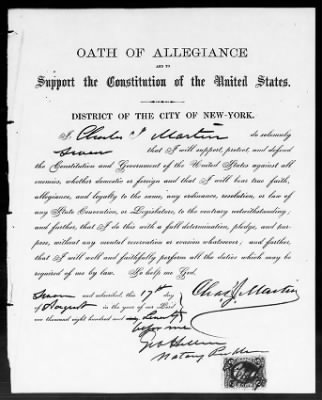 OATH OF ALLEGIANCE
AND TO
Support the Constitution of the United States.
DISTRICT OF THE CITY OF NEW-YORK.
I, Charles J. Martin do solemnly
swear that I will support, protect, and defend
the Constitution and Government of the United States against all
enemies, whether domestic or foreign and that I will bear true faith,
allegiance, and loyalty to the same, any ordinance, resolution, or law of
any State Convention, or Legislature, to the contrary notwithstanding;
and further, that I do this with a full determination, pledge, and pur-
pose, without any mental reservation or evasion whatsoever; and further,
that I will well and faithfully perform all the duties which may be
required of me by law. So help me God.
Sworn and subscribed, this 17th day
of August in the year of our Lord
one thousand eight hundred and seventy
before me
Chas J. Martin
Notary Public